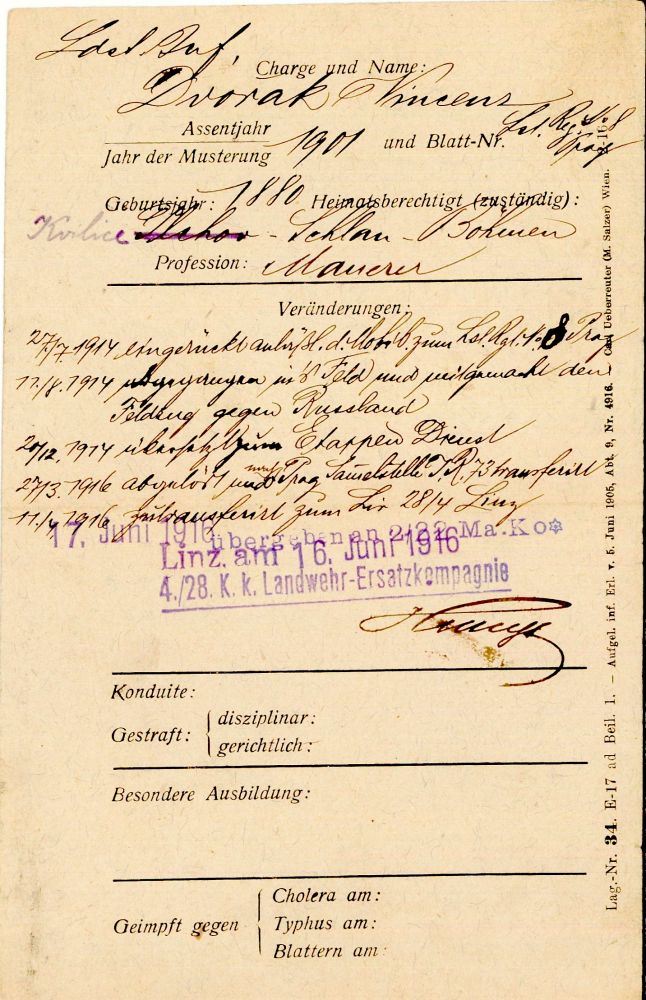 Ldst Inf,
Charge und Name:
Dvorak Vincenz
Assentjahr
Jahr der Musterung 1901 und Blatt-Nr. Lst. Reg. No 8
Prag
Geburtsjahr: 1880 Heimatsberechtigt (zuständig):
Kvilice - Schlan - Böhmen
Profession: Maurer
Veränderungen:
27/7 1914 eingerückt anläßl. d. Mobil. zum Lst. Rgt. No. 8 Prag
11/8. 1914 abgegangen ins Feld und mitgemacht den
Feldzug gegen Russland
20/12. 1914 übersetzt zum Etappen Dienst
27/3. 1916 abgelöst und nach Prag I.R. 73 transferirt
11./4 1916 transferirt zum Lir 28/4 Linz
17. Juni 1916 übergeben an 2/22 Ma.Ko
Linz, am 16. Juni 1916
4./28. K. k. Landwehr-Ersatzkompagnie
Konduite:
Gestraft: disziplinar:
gerichtlich:
Besondere Ausbildung:
Geimpft gegen
Cholera am:
Typhus am:
Blattern am:
Lag.-Nr. 34. E-17 ad Beil. 1. — Aufgel. inf. Erl. v. 5. Juni 1905, Abt. 9, Nr. 4916. Carl Ueberreuter (M. Salzer) Wien.